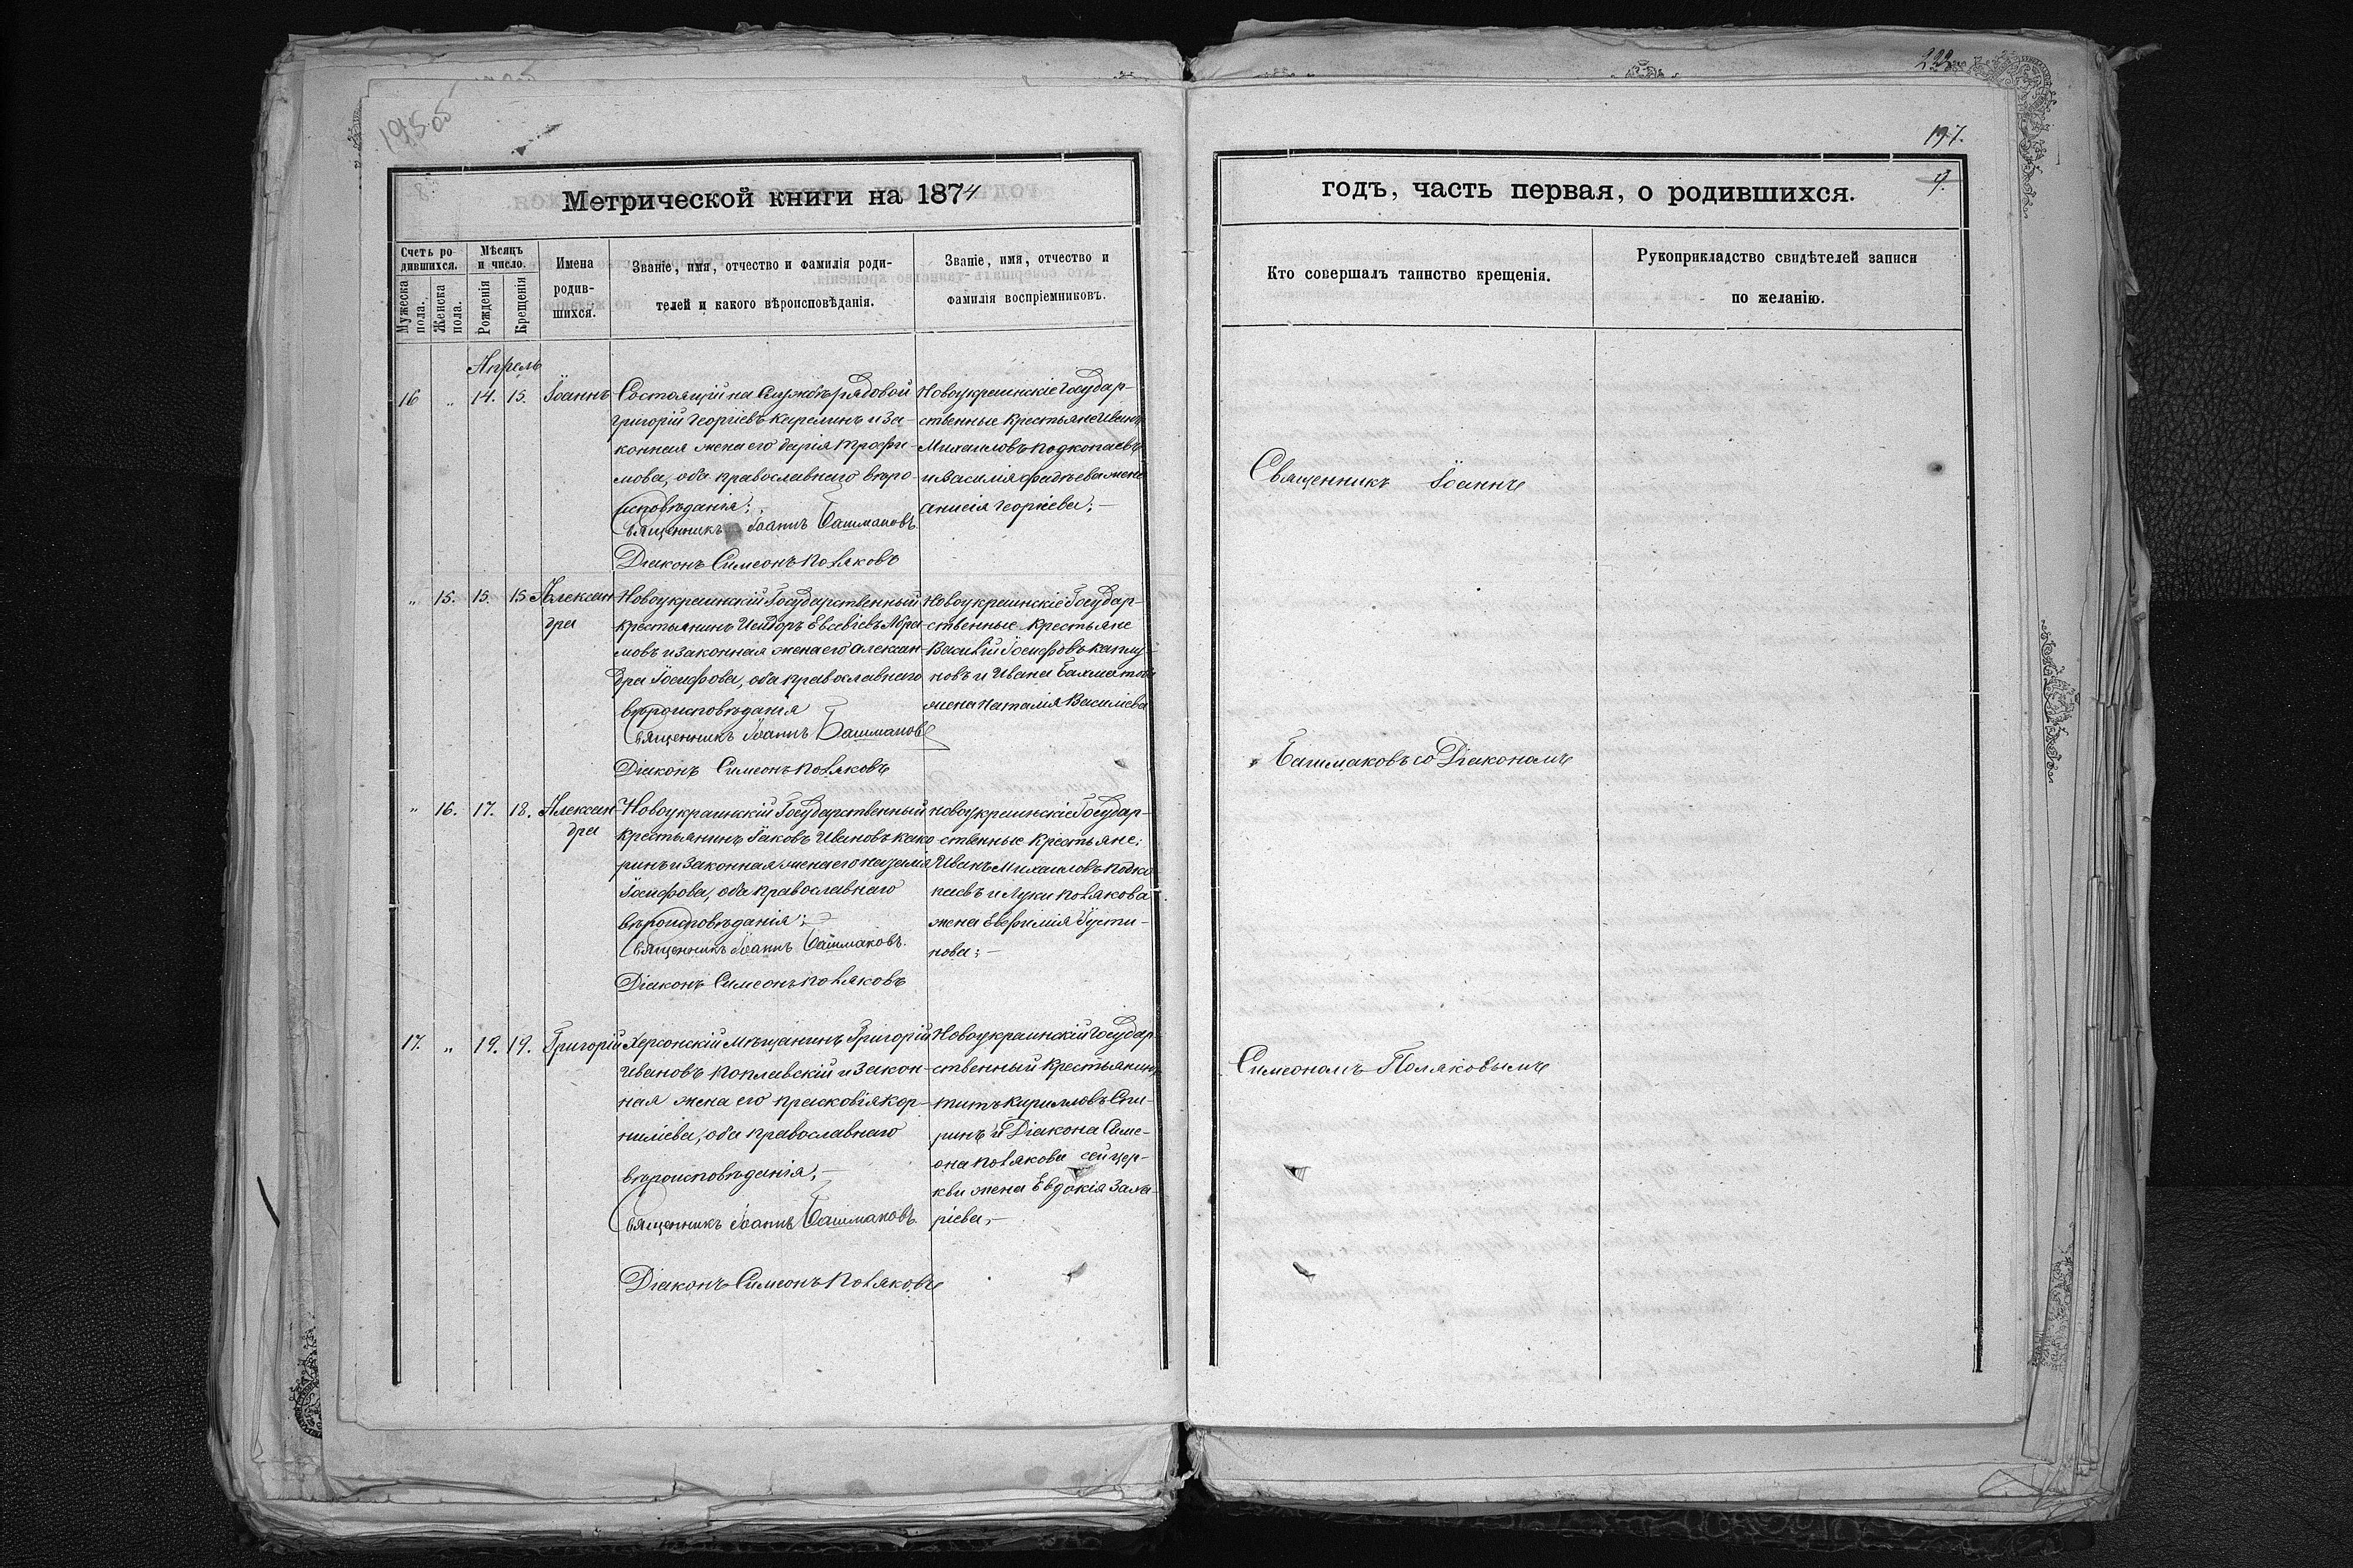 195 об
222
197.
9.
Метрической книги на 1874
годъ, часть первая, о родившихся.
Счетъ ро-
дившихся.
Мужеска
пола.
Женска
пола.
Мѣсяцъ
и число.
Рожденія
Крещенія
Имена
родив-
шихся.
Званіе, имя, отчество и фамилія роди-
телей и какого вѣроисповѣданія.
Званіе, имя, отчество и
фамилія воспріемниковъ.
Кто совершалъ таинство крещенія.
Рукоприкладство свидѣтелей записи
по желанію.
Апрель
16 „ 14. 15. Іоаннъ
Состоящій на Службѣ рядовой
григорій Георгіевъ Карелинъ и за-
конная жена его дарія трофи-
мова, оба православнаго вѣро-
исповѣданія;
Священникъ Іоаннъ Башмаковъ
Діаконъ Симеонъ Поляковъ
Новоукраинскіе Государ-
ственные Крестьяне Иванъ
Михаиловъ подкопаевъ
и Василія фадѣева жена
анисія георгіева; —
„ 15. 15. 15. Алексан
дра
Новоукраинскій Государственный
крестьянинъ Исидоръ Евсевіевъ Абра-
мовъ и законная жена его алексан-
дра Іосифова, оба православнаго
вѣроисповѣданія
Священникъ Іоаннъ Башмаковъ
Діаконъ Симеонъ Поляковъ
Новоукраинскіе Государ-
ственные Крестьяне
Василій Іосифовъ каплу
новъ и Ивана Бахматова
жена наталія Василіева
„ 16. 17. 18. Алексан
дра
Новоукраинскій Государственный
крестьянинъ Іаковъ Ивановъ како
ринъ и законная жена его
Іосифова, оба православнаго
вѣроисповѣданія; —
Священникъ Іоаннъ Башмаковъ.
Діаконъ Симеонъ Поляковъ
новоукраинскіе Государ-
ственные Крестьяне;
Иванъ Михаиловъ подко
паевъ и Луки Полякова
жена Евфимія Іусти-
нова; —
17. „ 19. 19. Григорій
Херсонскій мѣщанинъ Григорій
Ивановъ Поплавскій и закон-
ная жена его прасковія кор-
ниліева, оба православнаго
вѣроисповѣданія; —
Священникъ Іоаннъ Башмаковъ
Діаконъ Симеонъ Поляковъ
Новоукраинскій Государ-
ственный Крестьянинъ
титъ Кирилловъ Спи-
ринъ и Діакона Симе-
она Полякова сей цер-
кви жена Евдокія Заха-
ріева, —
Священникъ Іоаннъ
Башмаковъ со Діакономъ
Симеономъ Поляковымъ